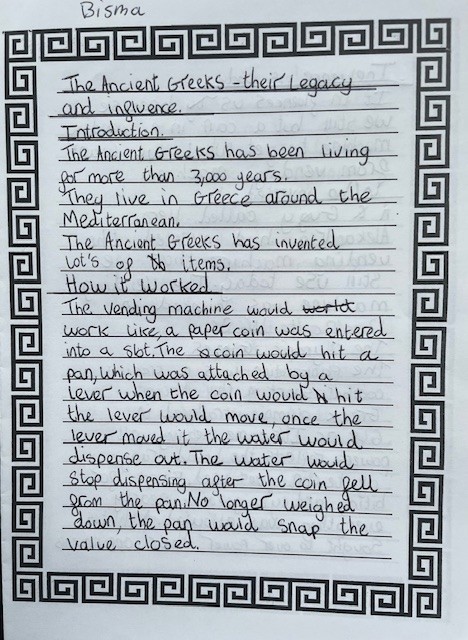 Bisma
The Ancient Greeks - their Legacy
and influence.
Introduction.
The Ancient Greeks has been living
for more than 3,000 years.
They live in Greece around the
Mediterranean.
The Ancient Greeks has invented
Lot's of items.
How it worked
The vending machine would world
work like, a paper coin was entered
into a slot. The coin would hit a
pan, which was attached by a
lever when the coin would hit
the lever would move, once the
lever moved it the water would
dispense out. The water would
stop dispensing after the coin fell
from the pan. No longer weighed
down, the pan would snap the
value closed.